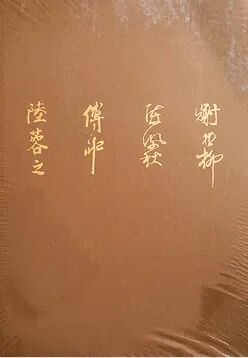 謝稚柳
陳佩秋
傅申
陸蓉之